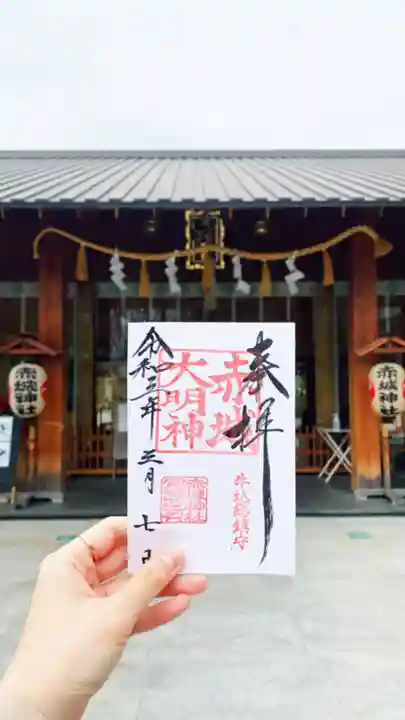 奉拝
牛込総鎮守
赤城
大明神
令和三年三月七日
赤城神社
赤城神社